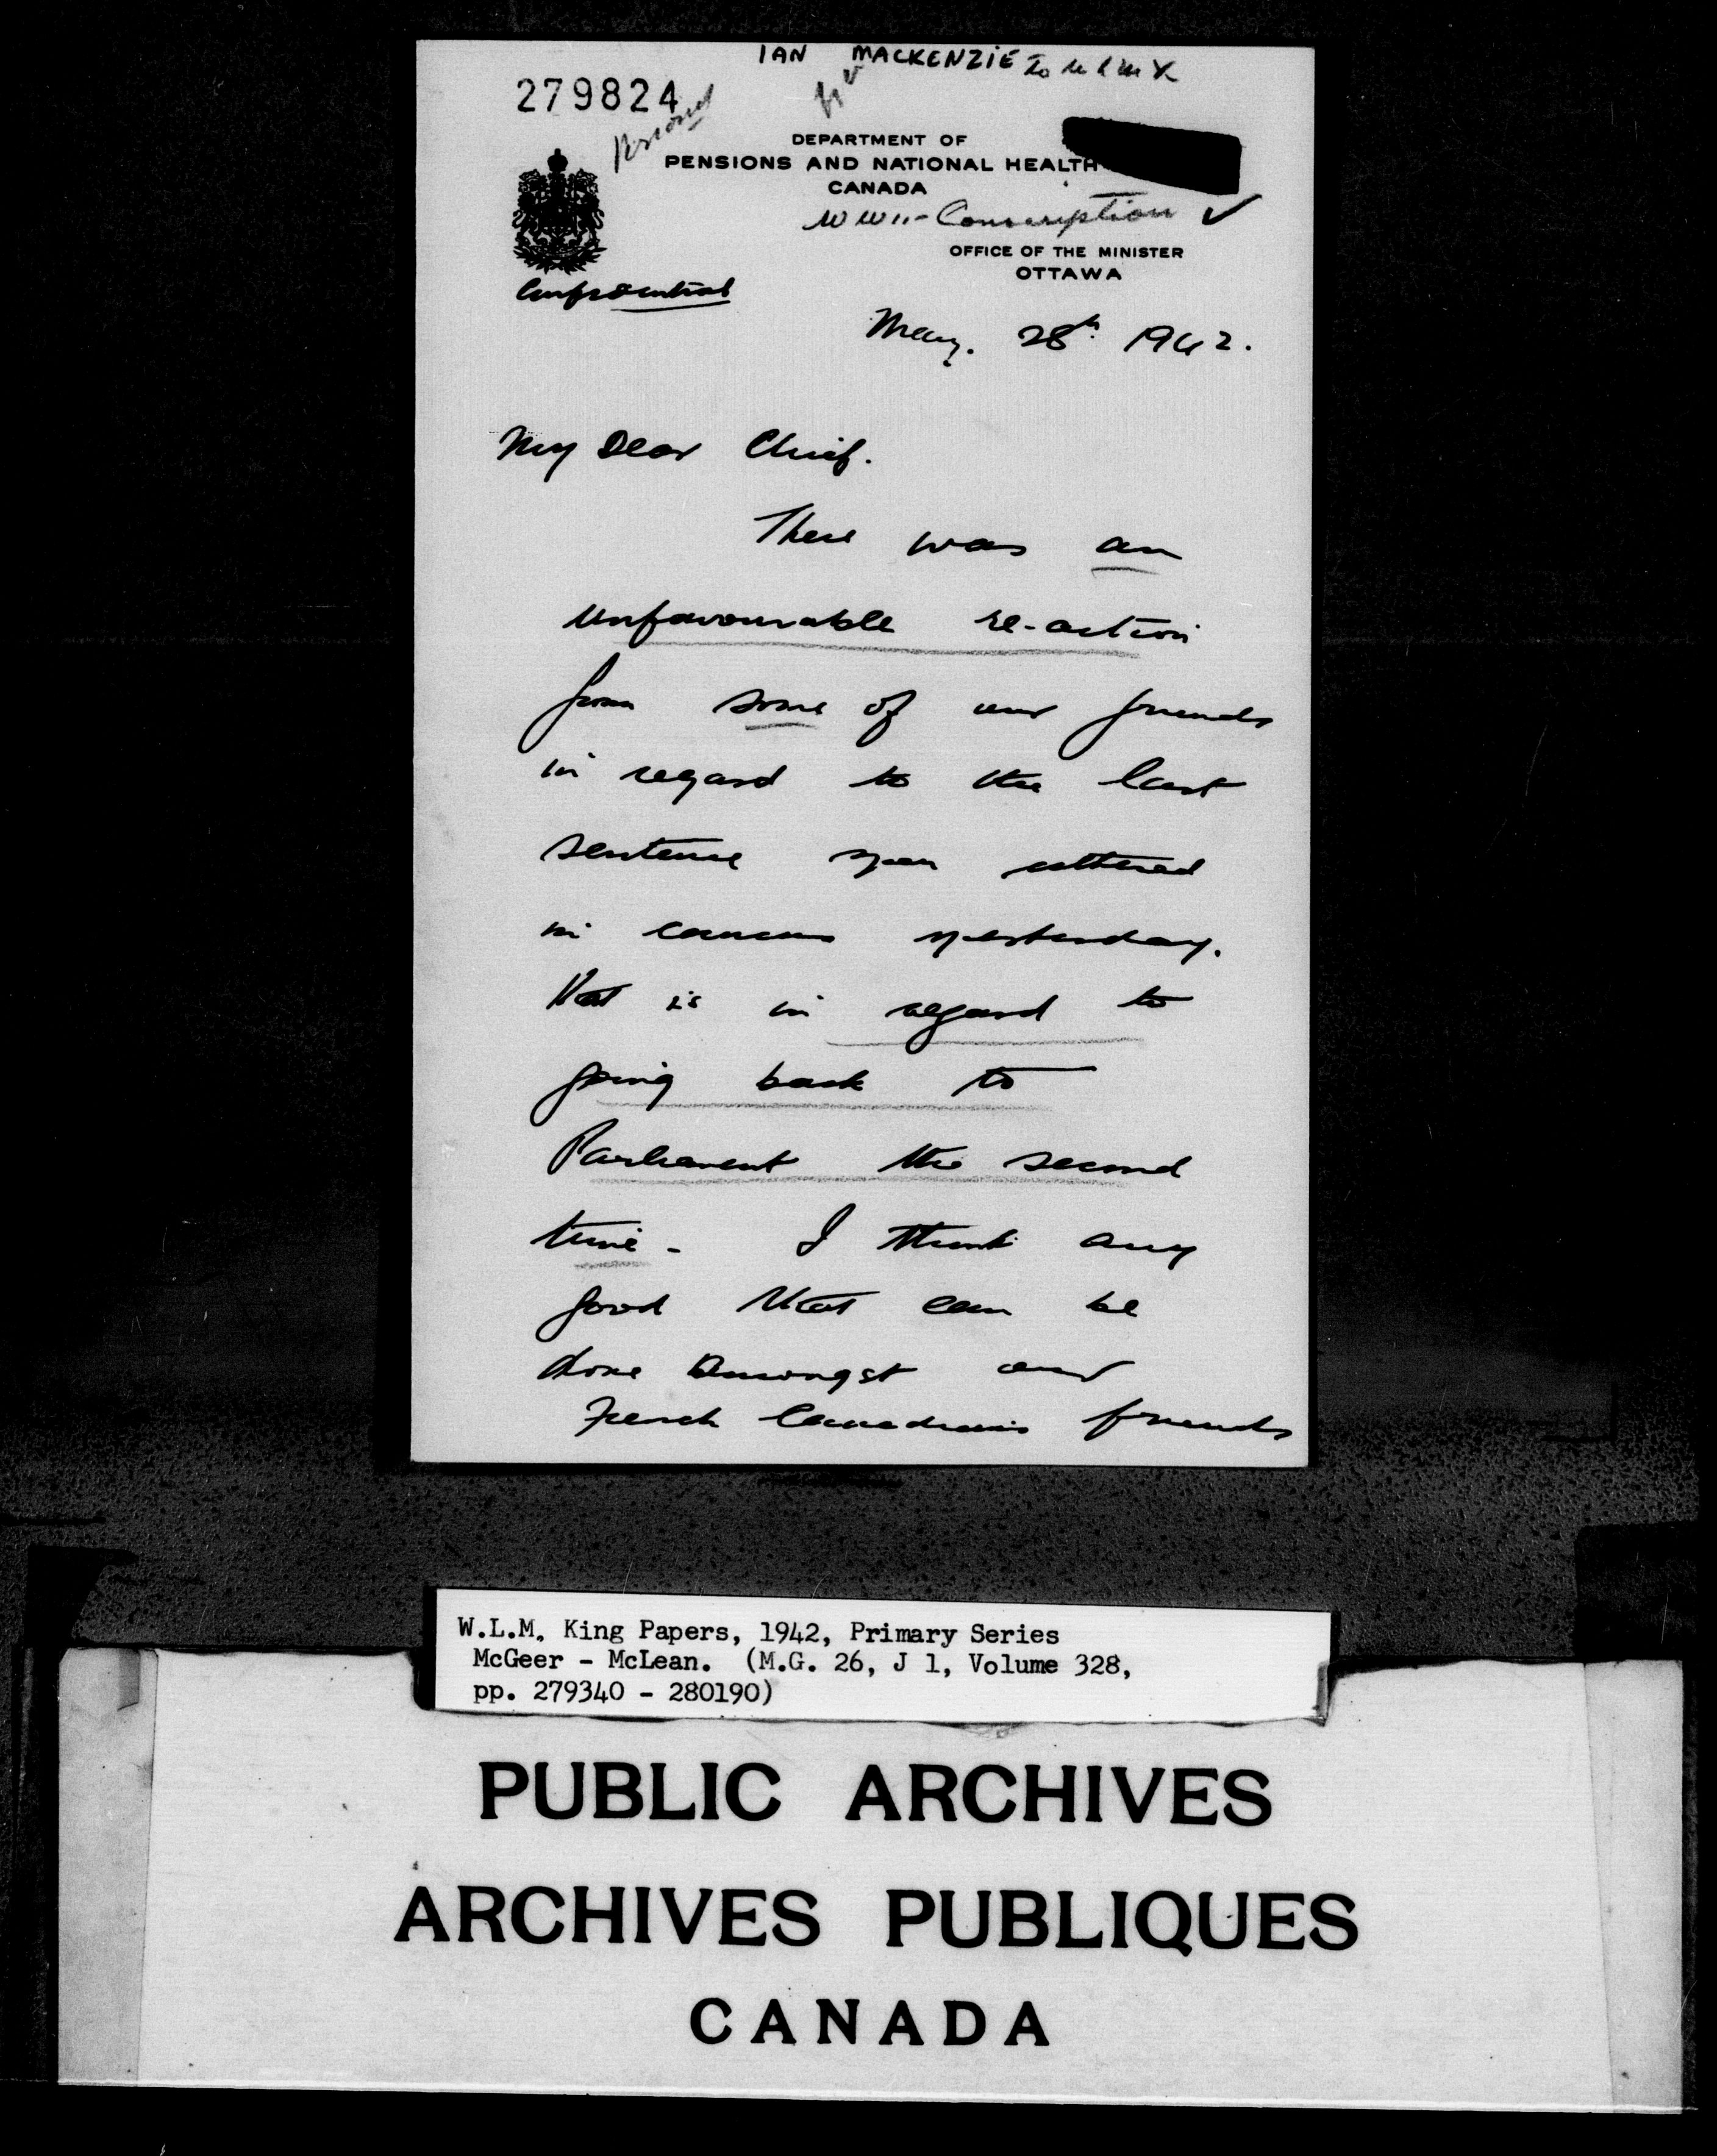 IAN MACKENZIE to WLMK
279824
Personal
DEPARTMENT OF
PENSIONS AND NATIONAL HEALTH
CANADA
WWII - Conscription ✓
OFFICE OF THE MINISTER
OTTAWA
Confidential
May. 28th 1942.
My Dear Chief.
There was an
unfavourable re-action
from some of our friends
in regard to the last
sentence you uttered
in caucus yesterday.
that is in regard to
going back to
Parliament the second
time - I think any
good that can be
done amongst our
French Canadian friends
W.L.M. King Papers, 1942, Primary Series
McGeer - McLean. (M.G. 26, J 1, Volume 328,
pp. 279340 - 280190)
PUBLIC ARCHIVES
ARCHIVES PUBLIQUES
CANADA